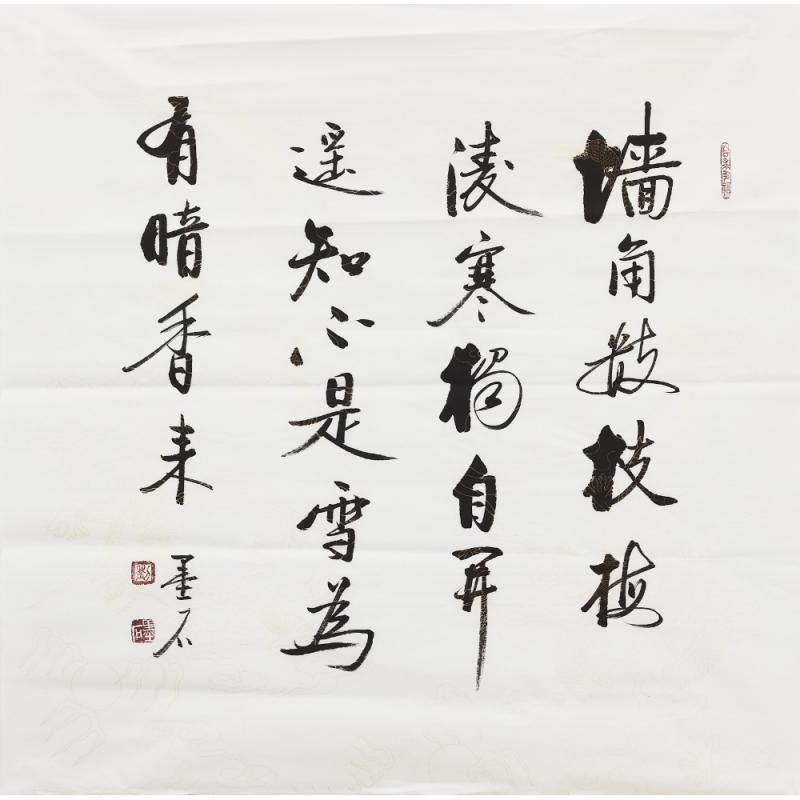 墙角数枝梅
凌寒獨自開
遥知不是雪為
有暗香来
墨石